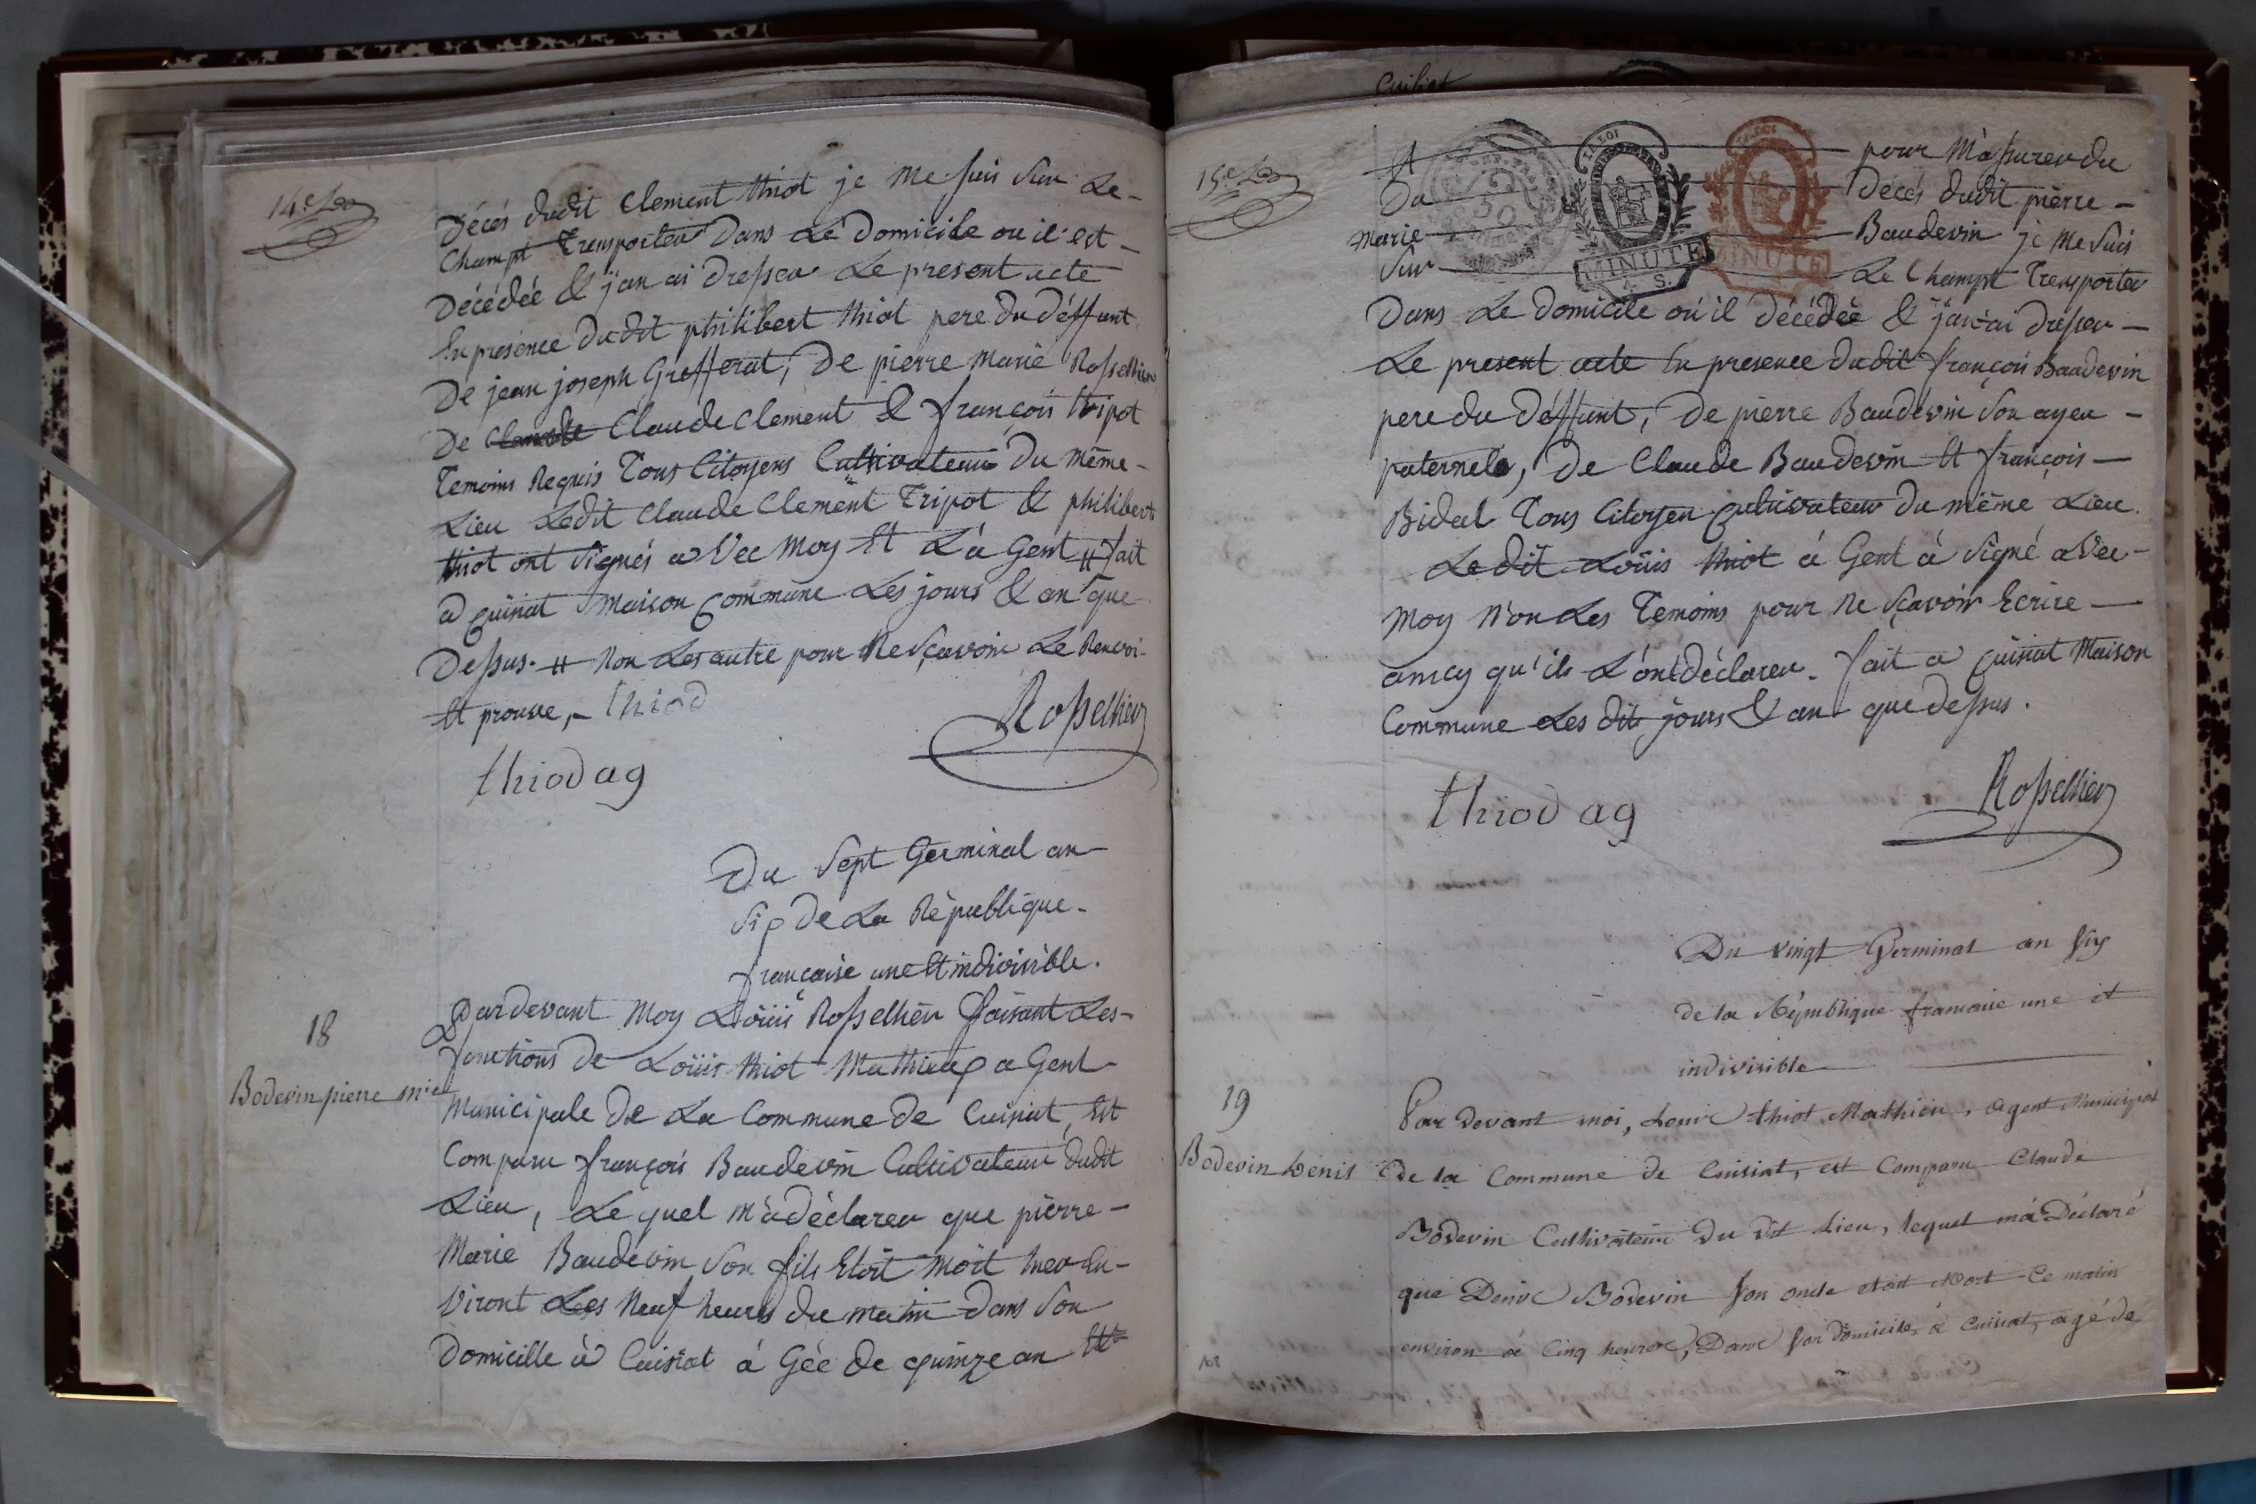 14.e
Décés dudit Clement thiot je me suis sur Le-
Champt Transporter Dans Le Domicile ou il est-
Décédée & j'an ai dresser Le present acte
En présence dudit philibert thiot pere du déffunt
De jean joseph Grefferat, De pierre marie Rossellier
De Claude Claude Clement & françois tripot
Temoins Requis Tous Citoyens Cultivateurs Du même-
Lieu Ledit Claude Clement Tripot & philibert
thiot ont signés avec moy Et L'a Gent # fait
a Cuisiat maison Commune Les jours & an que
Dessus. # Non Les autre pour Ne sçavoir Le Renvoi-
Et prouve, - thiod
Rossellier
thiod ag
Du sept Germinal an-
six de La Republique-
francaise une Et indivisible.
18
Bodevin pierre m.ie
Pardevant moy Loüis Rossellier faisant Les-
fonctions de Loüis thiot Mathieux a Gent
Municipale de La Commune de Cuisiat, Est
Comparu françois Baudevin Cultivateur dudit
Lieu, Le quel m'a déclarer que pierre-
Marie Baudevin son fils Etoit mort hier En-
Viront Les Neuf heures du matin Dans son
Domicille à Cuisiat á Gée de quinze an
Cuisiat
15.e
A
LA LOI
LA LOI
pour M'assurer du
Du
50
Décés dudit pierre-
marie
Baudevin je me suis
MINUTE
MINUTE
sur
Le Champt Transporter
Dans Le Domicile ou il décédée & j'an ai dresser-
Le present acte En presence dudit françois Baudevin
pere du déffunt, De pierre Baudevin son ayeu-
paternele, De Claude Baudevin Et françois-
Bidal Tous Citoyen Cultivateur du même Lieu.
Ledit Loüis thiot á Gent à signé avec-
moy N'on Les Temoins pour ne sçavoir Ecrire-
ancy qu'ils L'ont déclarer. fait a Cuisiat Maison
Commune Les dits jours & an que dessus.
thiod ag
Rossellier
Du vingt Germinal an six
de la République francaise une et
indivisible
19
Bodevin denis
Par devant moi, Louis thiot Mathieu, agent Municipal
de la Commune de Cuisiat, est Comparu Claude
Bodevin Cultivateur du dit Lieu, lequel m'a Déclaré
que Denis Bodevin son oncle etoit Mort Ce matin
environ à Cinq heures, Dans son domicile, à Cuisiat, agé de